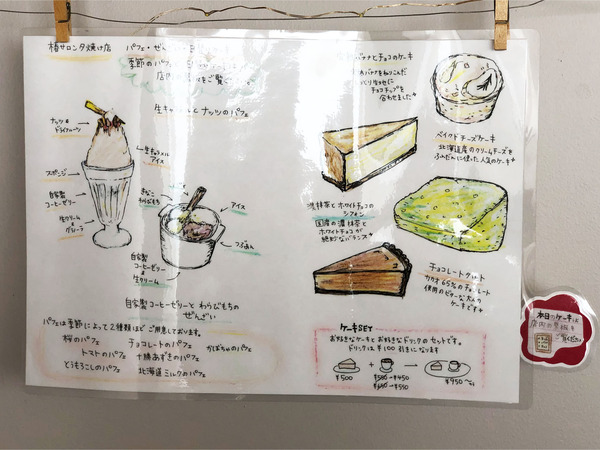 椿サロン夕焼け店
パフェ・ぜんざい
季節のパフェ
店内
ご覧
生キャラメルとナッツのパフェ
ナッツ&
ドライフルーツ
生キャラメル
アイス
スポンジ
自家製
コーヒーゼリー
生クリーム
&
グラノーラ
きなこ
わらびもち
アイス
つぶあん
自家製
コーヒーゼリー
&
生クリーム
自家製コーヒーゼリーとわらびもちの
ぜんざい
パフェは季節によって2種類ほどご用意しております。
桜のパフェ
チョコレートのパフェ
かぼちゃのパフェ
トマトのパフェ
十勝あずきのパフェ
とうもろこしのパフェ
北海道ミルクのパフェ
バナナとチョコのケーキ
バナナを練りこんだ
チョコチップを
合わせました
ベイクドチーズケーキ
北海道産のクリームチーズを
ふんだんに使った人気のケーキ
濃抹茶とホワイトチョコの
シフォン
国産の濃抹茶と
ホワイトチョコが
絶妙なバランス
チョコレートタルト
カカオ65%のチョコレート
使用のビターな大人の
ケーキです
ケーキSET
お好きなケーキとお好きなドリンクのセットです。
ドリンクは¥100引きになります
+
→
¥500
¥550→¥450
¥650→¥550
¥950〜
本日のケーキは
店内の黒板を
ご覧ください